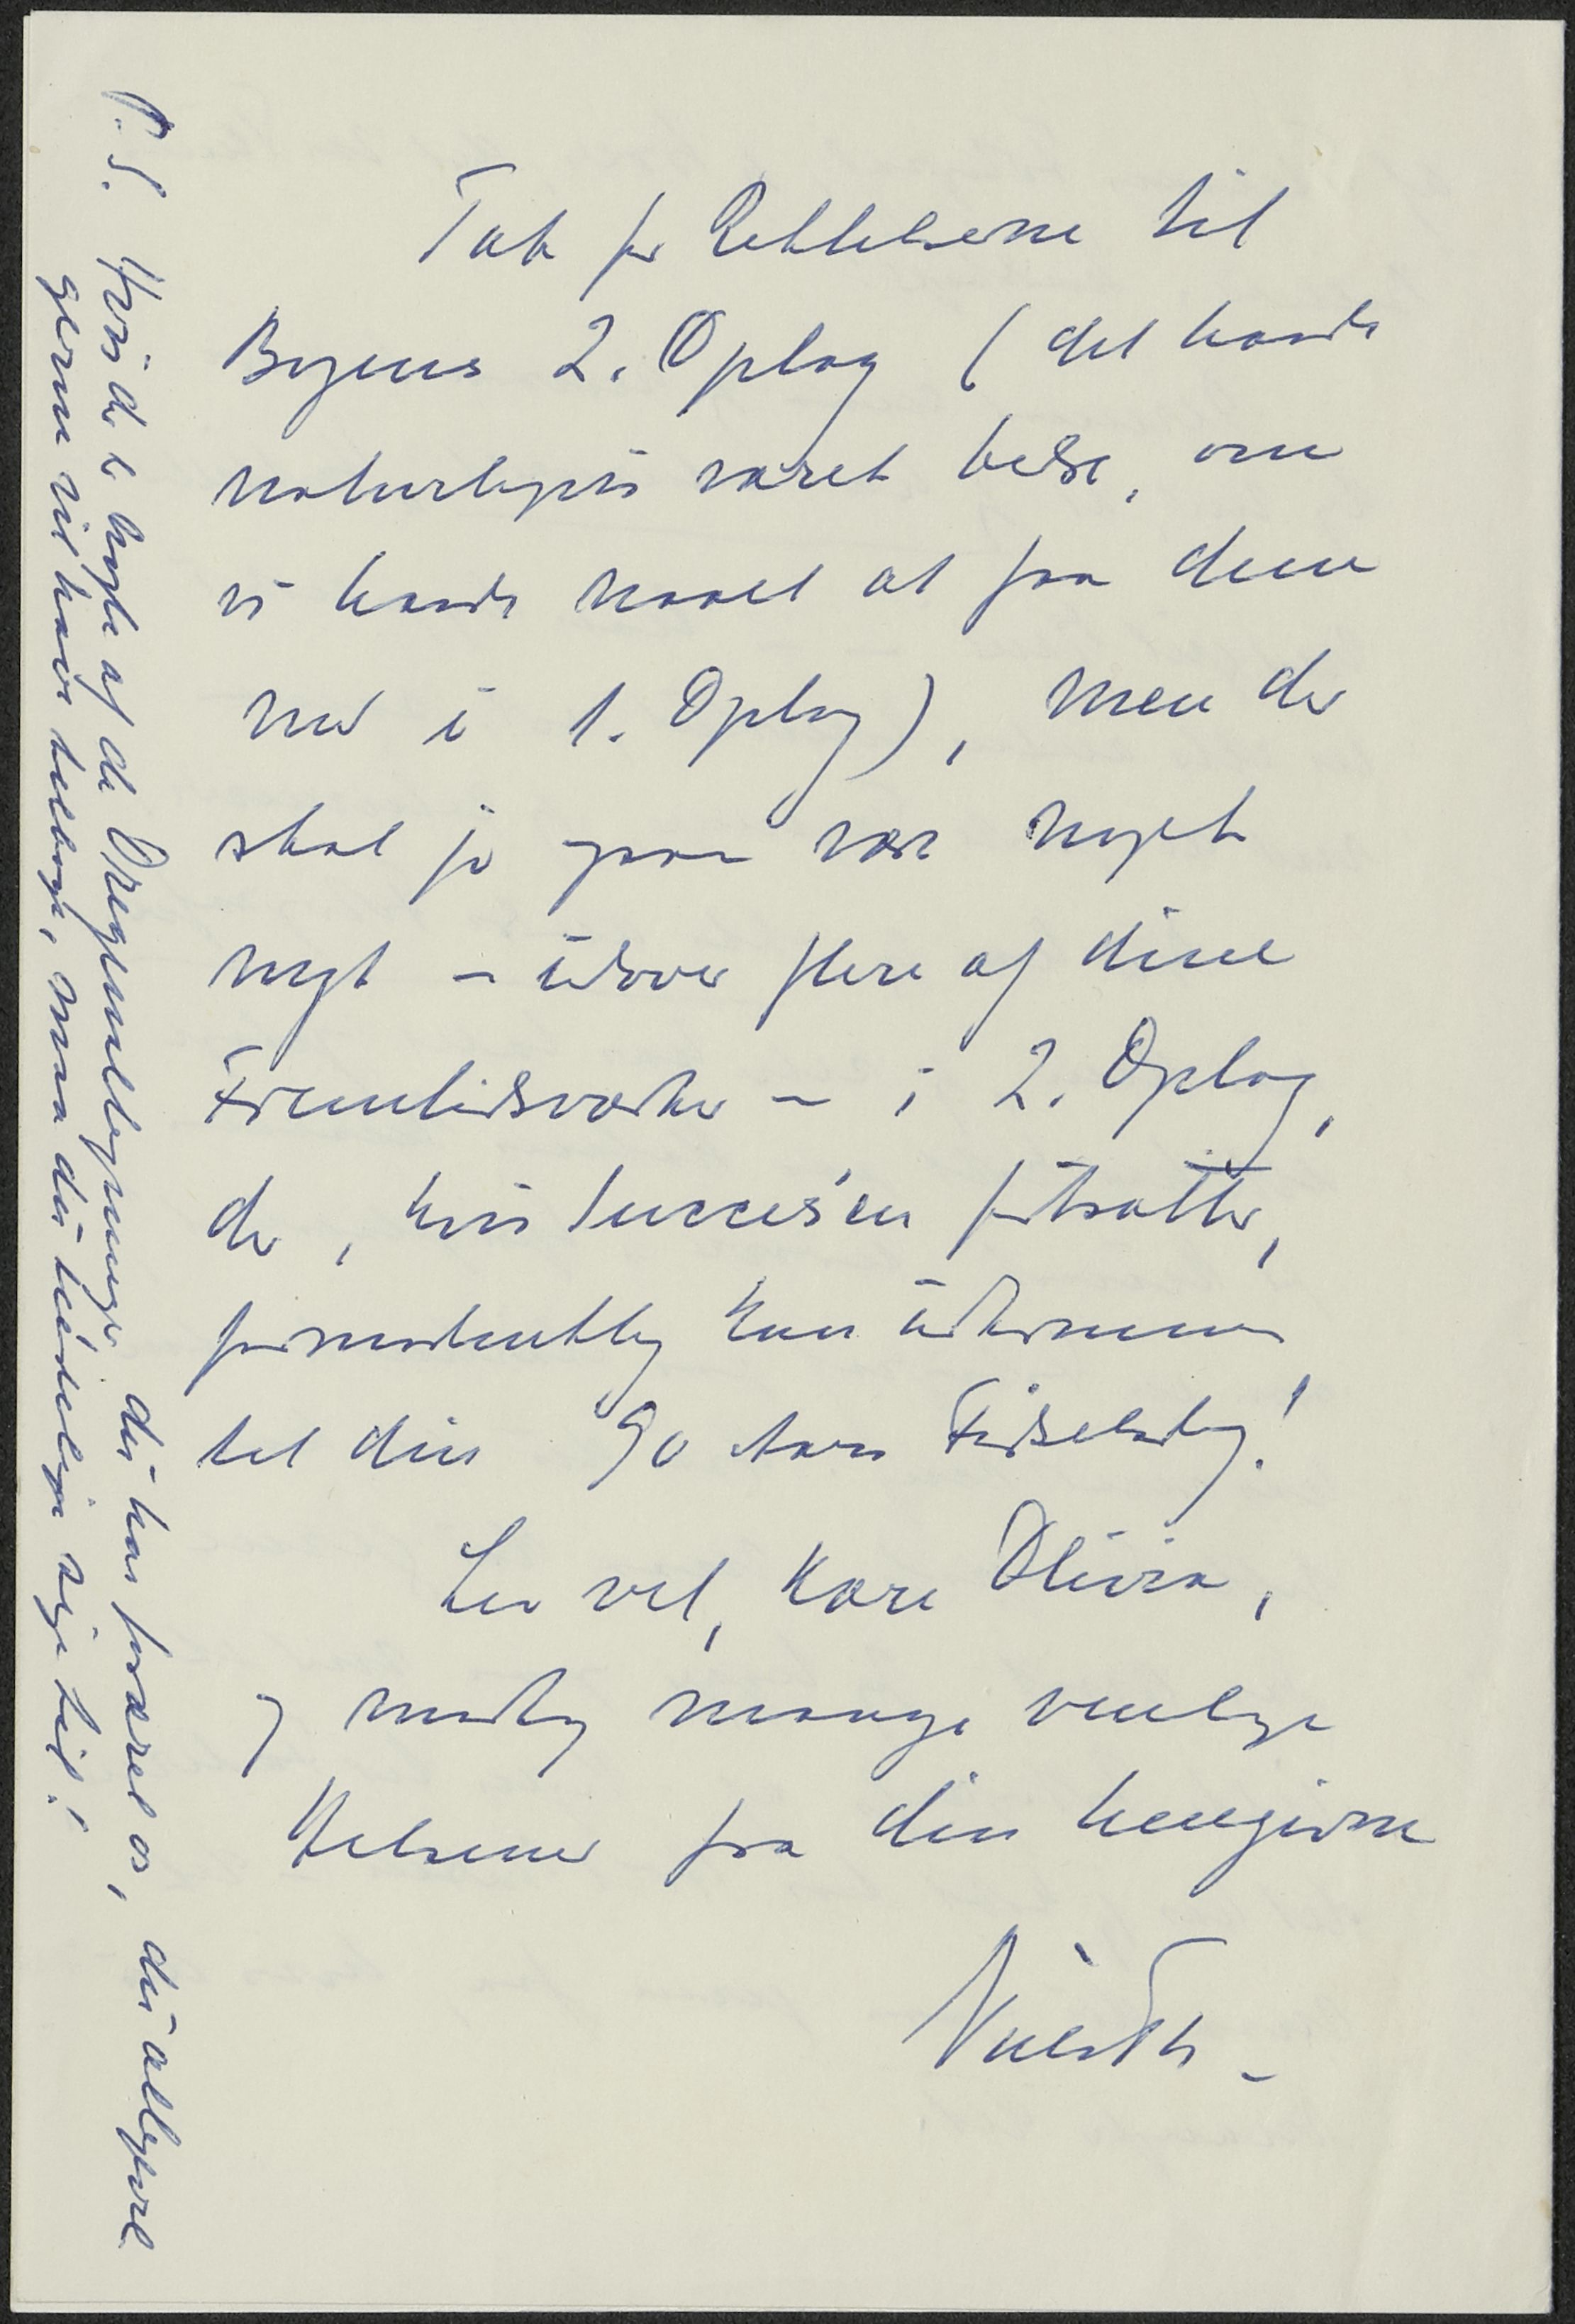 Tak for Rettelserne til
Bogens 2. Oplag (det havde
naturligvis været bedre, om
vi havde naaet at faa dem
med i 1. Oplag), men der
skal jo ogsaa være noget
nyt – udover flere af dine
Fremtidsværker – i 2. Oplag,
der, hvis Succes'en fortsætter,
formodentlig kan udkomme
til din 90 Aars Fødselsdag!
Lev vel, kære Olivia,
og modtag mange venlige
Hilsener fra din hengivne
P.S. Hvis der er nogle af de Originaltegninger du har foræret os, du alligevel
gerne vil have tilbage, maa du endelig sige til!